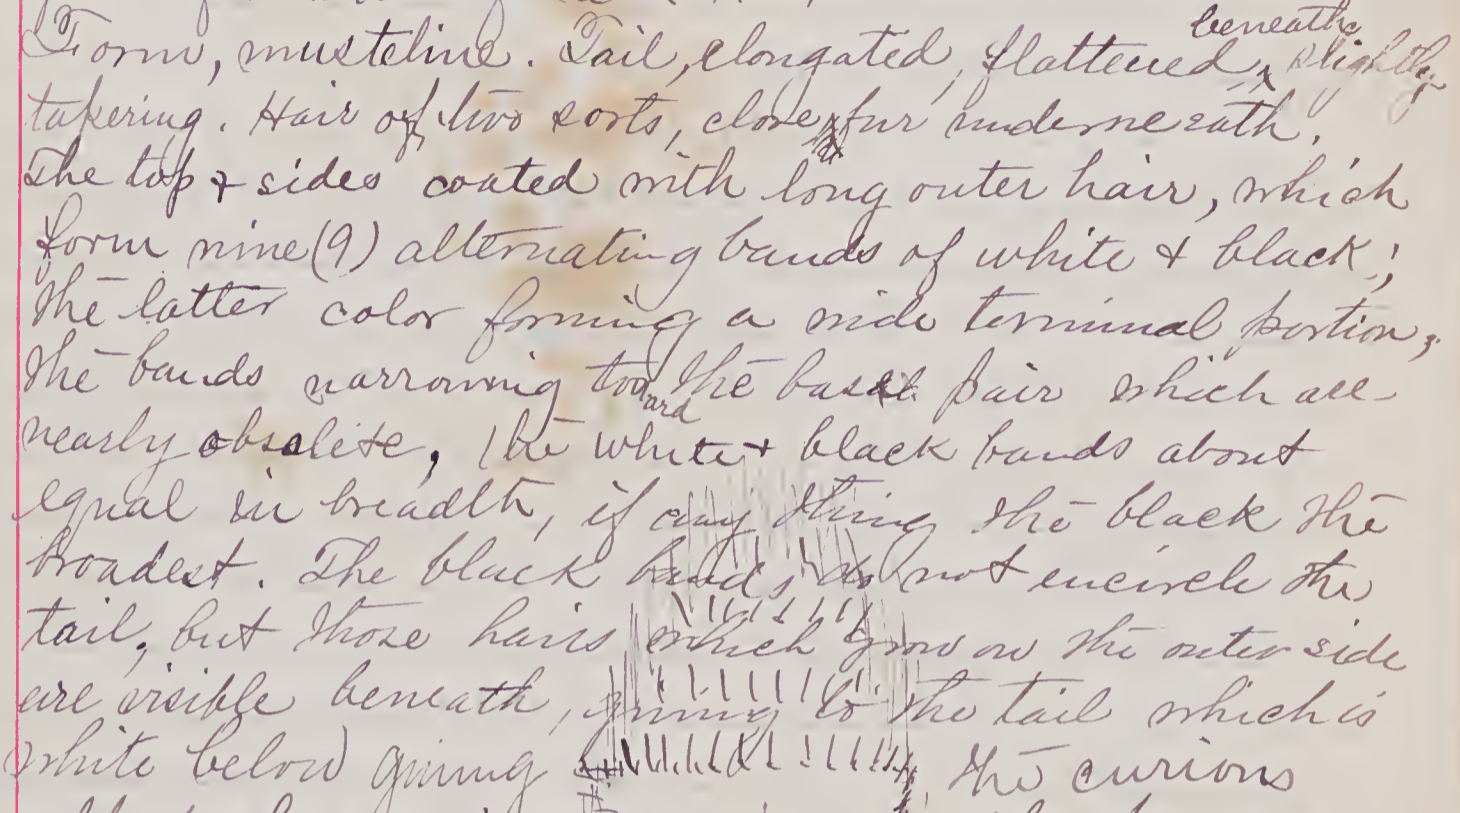 beneath
Form, musteline. Tail, elongated, flattened, slightly
tapering. Hair of two sorts, close fur underneath.
The top & sides coated with long outer hair, which
form nine (9) alternating bands of white & black;
the latter color forming a wide terminal portion;
the bands narrowing toward the basal pair which are
nearly obsolete, the white & black bands about
equal in breadth, if any thing the black the
broadest. The black bands do not encircle the
tail, but those hairs which grow on the outer side
are visible beneath, giving to the tail which is
white below giving the curious